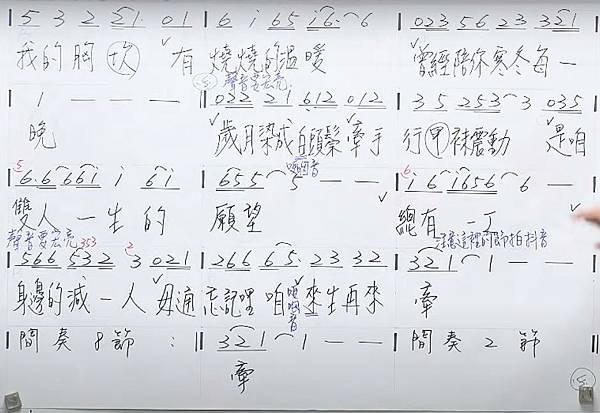 5 3 2 2̇1 01 | 6 i 65 i6·6 | 023 56 23 321
我的胸坎 有 燒燒的溫暖 曾經陪你寒冬每一
聲音要宏亮
1 — — — | 022 21 612 012 | 35 253 3 035
晚 歲月染成白頭鬃 牽手 行甲袂震動 是咱
6·6 661 i 61 | 655 5 — — | i 6 i656 6 —
雙人 一生的 願望 總有 一工
聲音要宏亮 353 2 注意這裡的節拍抖音
566 532 3 021 | 266 65· 23 32 | 321 1 — —
身邊的減一人 毋通 忘記哩 咱 來生再來 牽
間奏8節: | 321 1 — — | 間奏2節
牽